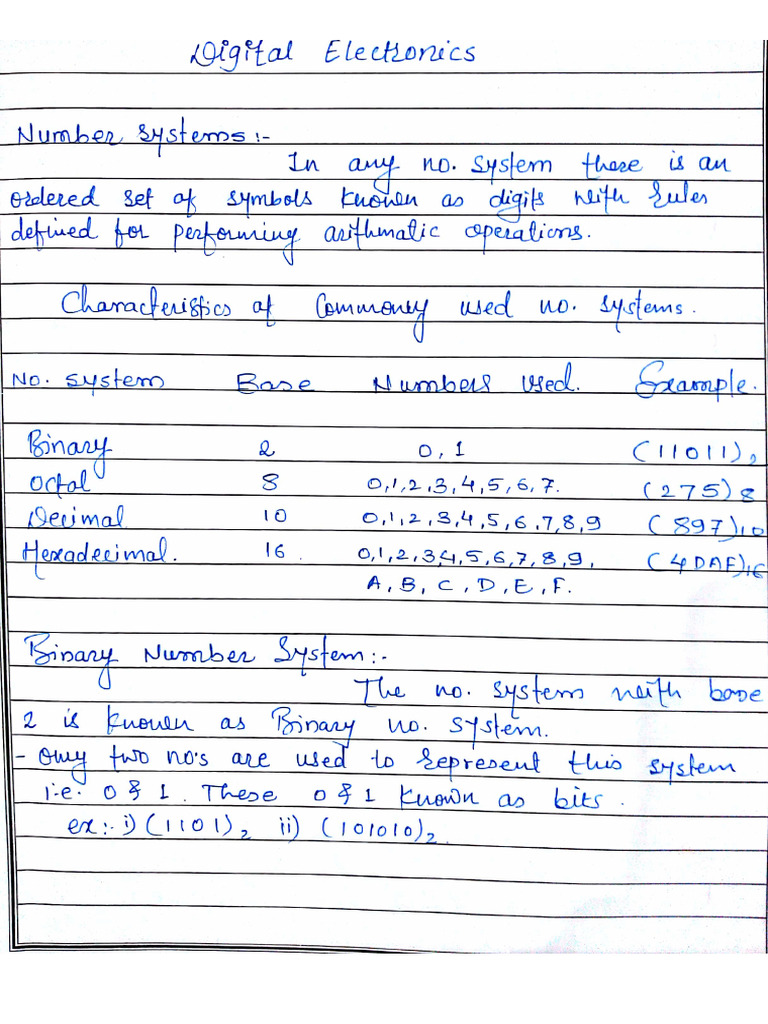 Digital Electronics
Number systems:-
In any no. system there is an
ordered set of symbols known as digits with rules
defined for performing arithmatic operations.
Characteristics of Commonly used no. systems.
No. system Base Numbers used. Example.
Binary 2 0, 1 (11011)₂
Octal 8 0,1,2,3,4,5,6,7. (275)₈
Decimal 10 0,1,2,3,4,5,6,7,8,9 (897)₁₀
Hexadecimal. 16. 0,1,2,3,4,5,6,7,8,9, (4DAF)₁₆
A, B, C, D, E, F.
Binary Number System:-
The no. system with base
2 is known as Binary no. system.
- Only two no's are used to represent this system
i.e. 0 & 1. These 0 & 1 known as bits.
ex:- i) (1101)₂ ii) (101010)₂